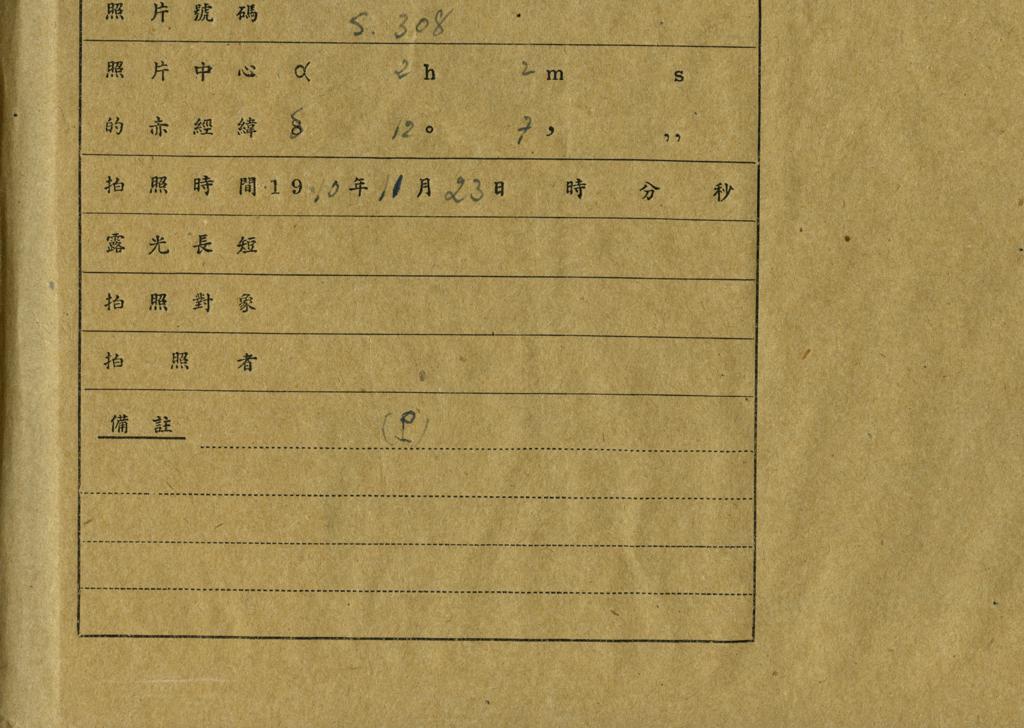 照片號碼 S. 308
照片中心 α 2 h 2 m s
的赤經緯 δ 12 ° 7 ’ ,,
拍照時間 1910年11月23日 時 分 秒
露光長短
拍照對象
拍照者
備註 (P)